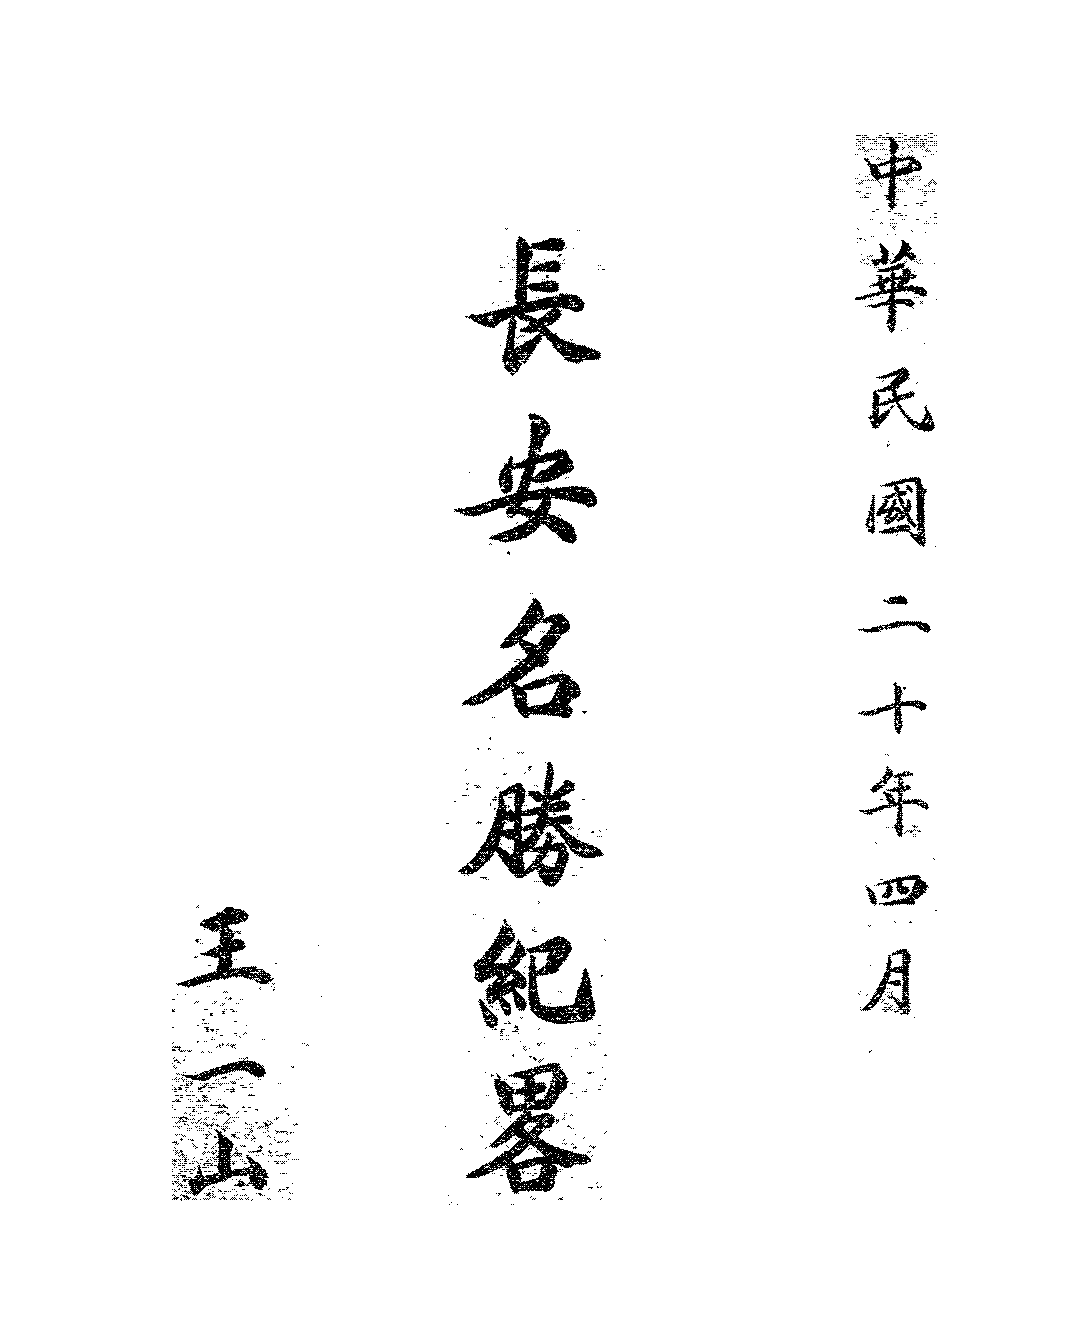 中華民國二十年四月
長安名勝紀畧
王一山